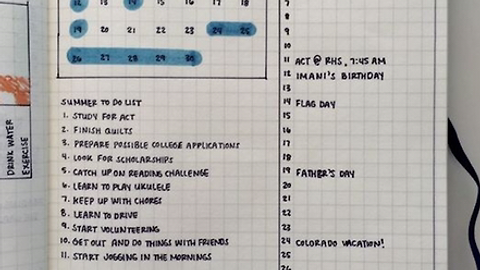 12 13 14 15 16 17 18
19 20 21 22 23 24 25
26 27 28 29 30
SUMMER TO DO LIST
1. STUDY FOR ACT
2. FINISH QUILTS
3. PREPARE POSSIBLE COLLEGE APPLICATIONS
4. LOOK FOR SCHOLARSHIPS
5. CATCH UP ON READING CHALLENGE
6. LEARN TO PLAY UKULELE
7. KEEP UP WITH CHORES
8. LEARN TO DRIVE
9. START VOLUNTEERING
10. GET OUT AND DO THINGS WITH FRIENDS
11. START JOGGING IN THE MORNINGS
DRINK WATER
EXERCISE
7
8
9
10
11 ACT @ RHS, 7:45 AM
12 IMANI'S BIRTHDAY
13
14 FLAG DAY
15
16
17
18
19 FATHER'S DAY
20
21
22
23
24 COLORADO VACATION!
25
26